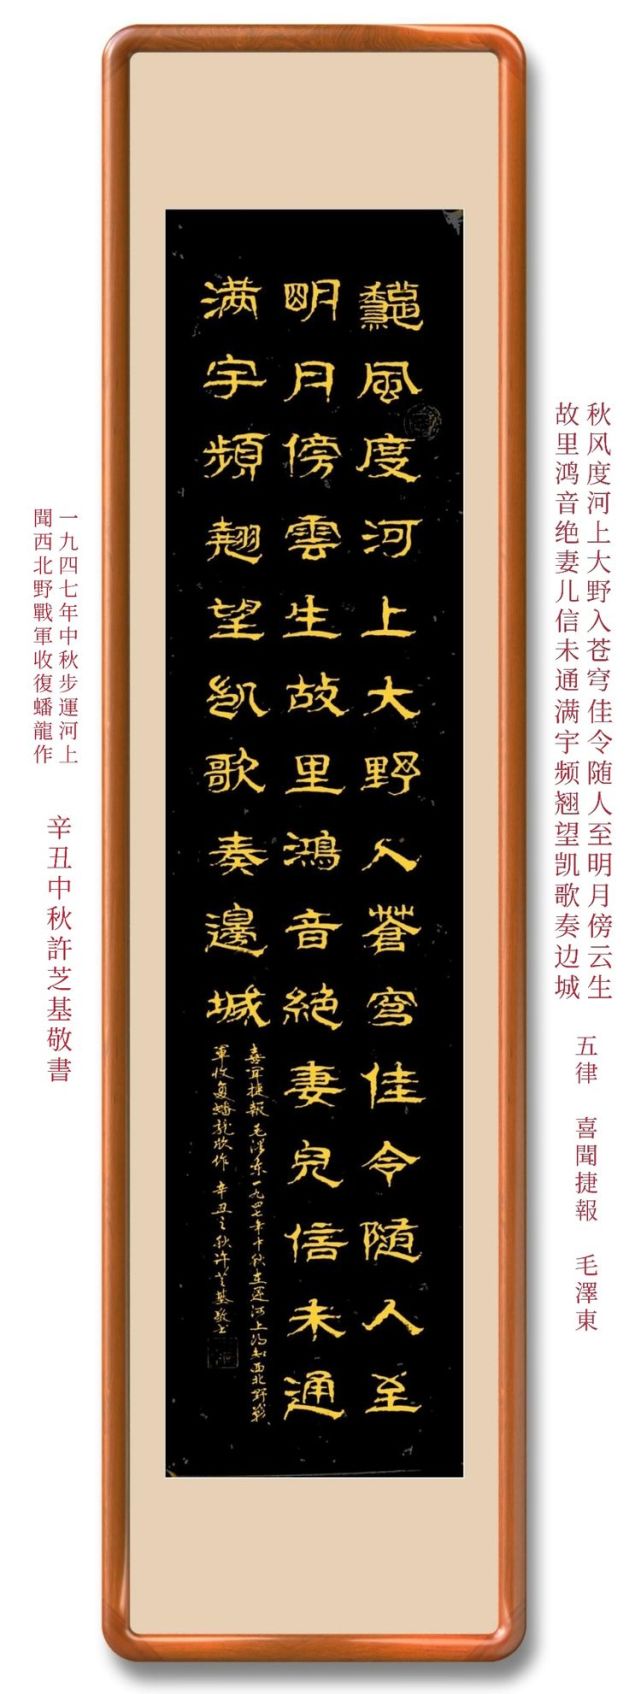 秋风度河上大野入苍穹佳令随人至明月傍云生
故里鸿音绝妻儿信未通满宇频翘望凯歌奏边城
五律 喜聞捷報 毛澤東
龝風度河上大野入蒼穹佳令隨人至
明月傍雲生故里鴻音絕妻兒信未通
满宇頻翹望凱歌奏邊城
喜闻捷報 毛泽东一九四七年中秋步运河上闻西北野戰
軍收复蟠龍作 辛丑中秋許芝基敬书
一九四七年中秋步運河上
聞西北野戰軍收復蟠龍作
辛丑中秋許芝基敬書